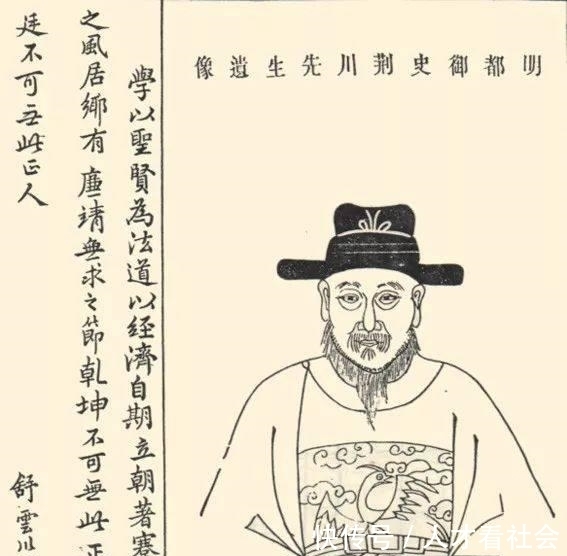 明都御史荆川先生遺像
學以聖賢為法道以经濟自期立朝著蹇
之風居鄉有廉靖無求之節乾坤不可無此正
廷不可无此正人
舒雲川
快传号/人才看社会